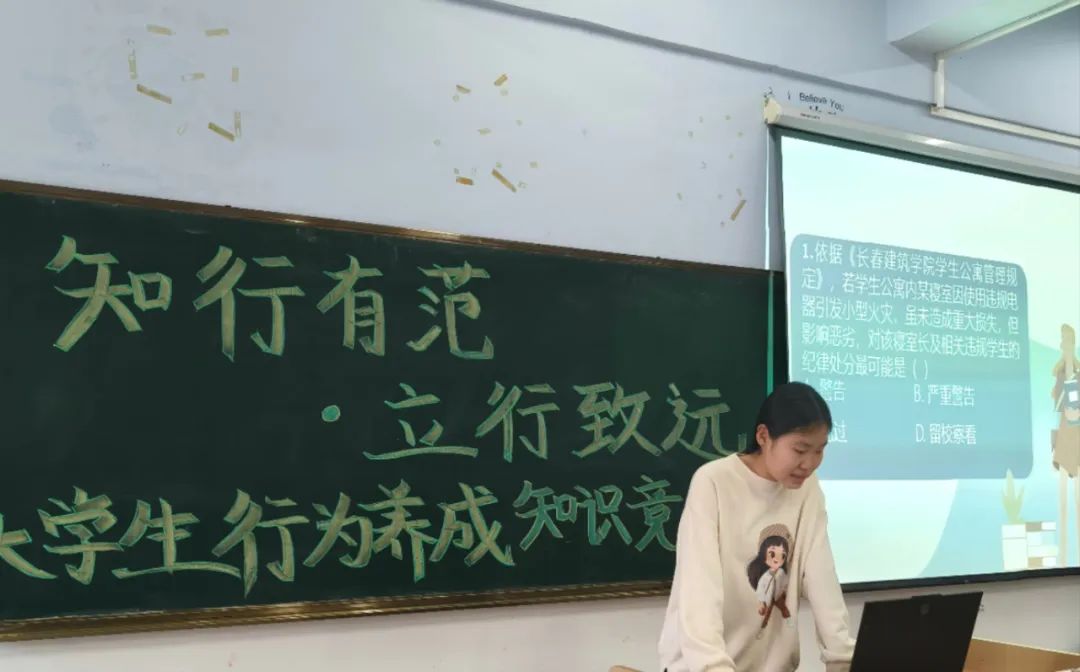 知行有范
·立行致远
大学生行为养成知识竞
Believe You
1.依据《长春建筑学院学生公寓管理规
定》，若学生公寓内某寝室因使用违规电
器引发小型火灾，虽未造成重大损失，但
影响恶劣，对该寝室长及相关违规学生的
纪律处分最可能是（ ）
警告 B. 严重警告
过 D. 留校察看